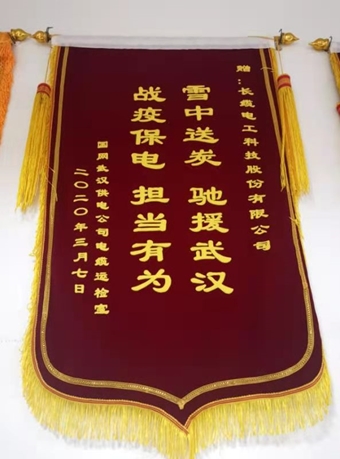 赠：长缆电工科技股份有限公司
雪中送炭 驰援武汉
战疫保电 担当有为
国网武汉供电公司电缆运检室
二〇二〇年三月七日